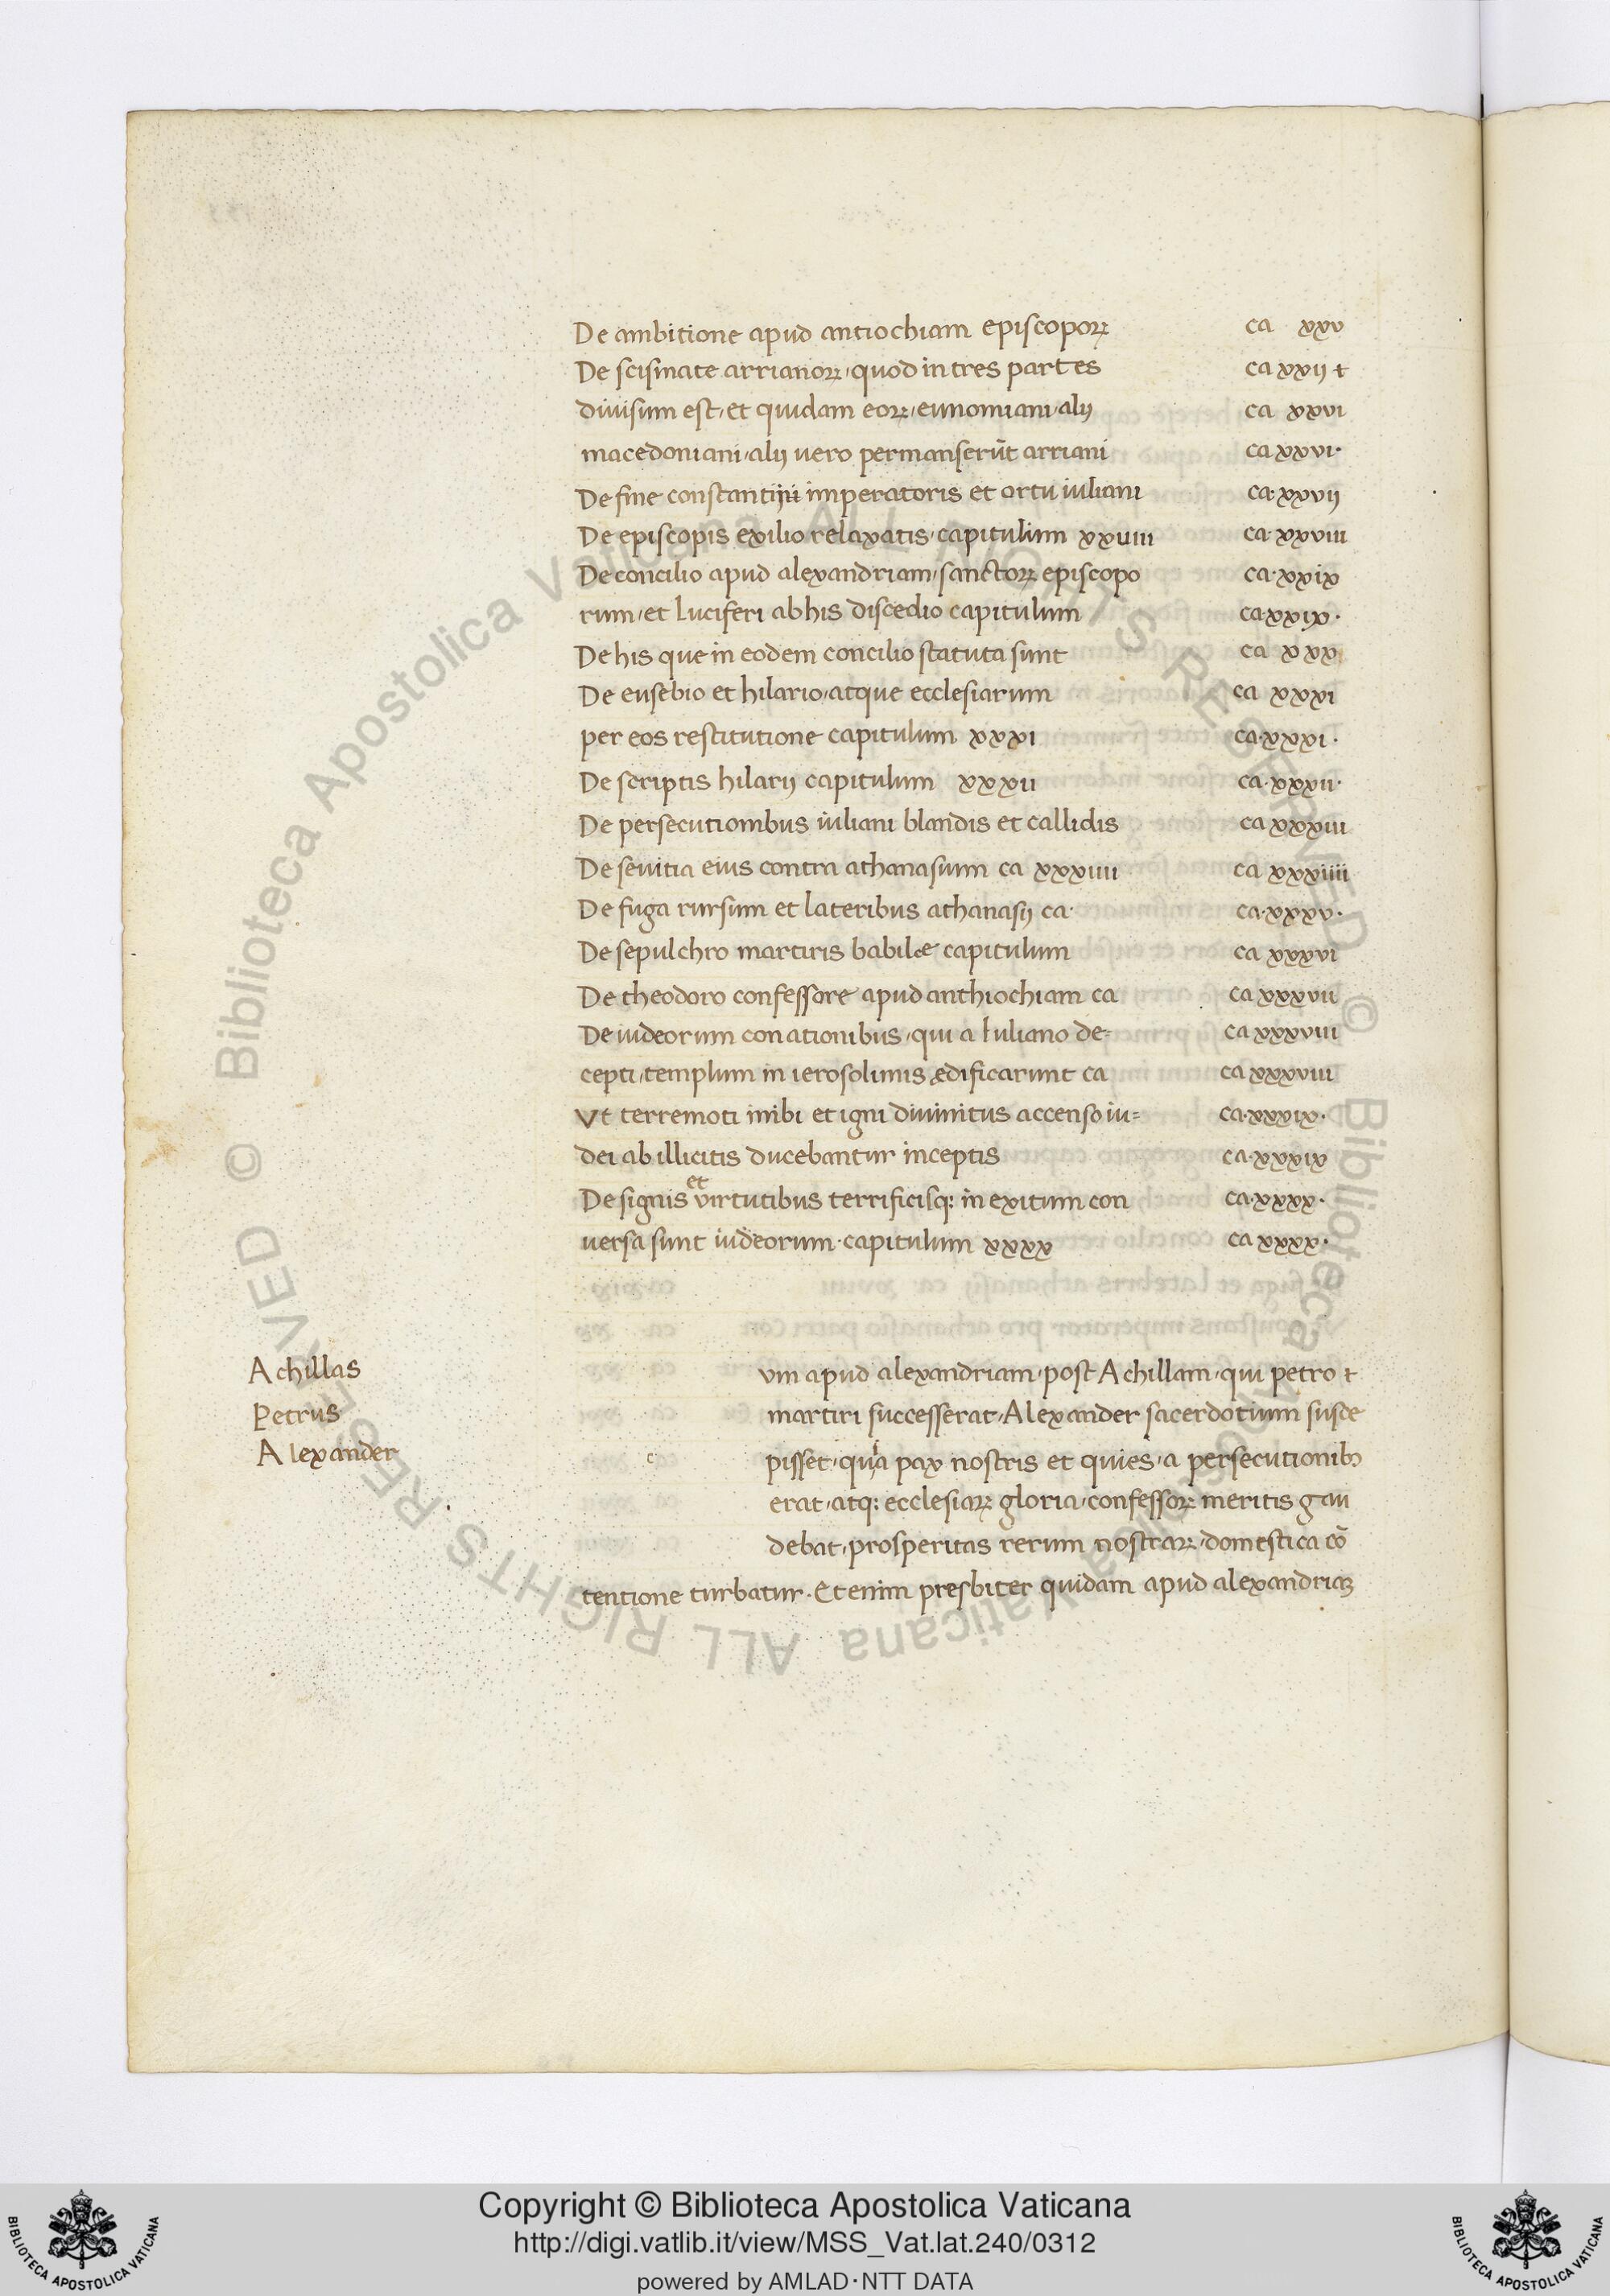 De ambitione apud antiochiam episcoporꝝ ca xxv
De scismate arrianorꝝ, quod in tres partes ca xxii et
divisum est, et quidam eorꝝ, eunomiani, alij ca xxvi
macedoniani, alij uero permanserūt arriani ca xxvi·
De fine constantini imperatoris et ortu iuliani ca·xxvij
De episcopis exilio relaxatis, capitulum xxuiii ca·xxviii
De concilio apud alexandriam, sanctorꝝ episcopo ca·xxix
rum, et luciferi ab his discedio capitulum ca·xxix·
De his que in eodem concilio statuta sunt ca xxx
De eusebio et hilario, atque ecclesiarum ca xxxi
per eos restitutione capitulum xxxi ca·xxxi·
De scriptis hilarij capitulum xxxii ca·xxxii·
De persecutionibus iuliani blandis et callidis ca xxxiii
De seuitia eius contra athanasium ca xxxiiii ca xxxiiii
De fuga rursum et lateribus athanasij ca· ca·xxxv·
De sepulchro martiris babile capitulum ca xxxvi
De theodoro confessore apud anthiochiam ca ca xxxvii
De iudeorum conationibus, qui a Iuliano de= ca xxxviii
cepti, templum in ierosolimis edificarunt ca ca xxxviii
Vt terremoti inibi et igni diuinitus accenso iu= ca·xxxix·
dei ab illicitis ducebantur inceptis ca·xxxix
De signis et virtutibus terrificisq; in exitum con ca·xxxx·
uersa sunt iudeorum·capitulum xxxx ca xxxx·
Achillas
Petrus
Alexander
c
vm apud alexandriam, post Achillam, qui petro et
martiri successerat, Alexander sacerdotium susce
pisset, quia pax nostris et quies, a persecutionibꝫ
erat, atq; ecclesiarꝝ gloria, confessorꝝ meritis gau
debat, prosperitas rerum nostrarꝝ, domestica cō
tentione turbatur. Etenim presbiter quidam apud alexandriaꝫ
Copyright © Biblioteca Apostolica Vaticana
http://digi.vatlib.it/view/MSS_Vat.lat.240/0312
powered by AMLAD·NTT DATA
BIBLIOTECA APOSTOLICA VATICANA
BIBLIOTECA APOSTOLICA VATICANA
© Biblioteca Apostolica Vaticana ALL RIGHTS RESERVED © Biblioteca Apostolica Vaticana ALL RIGHTS RESERVED